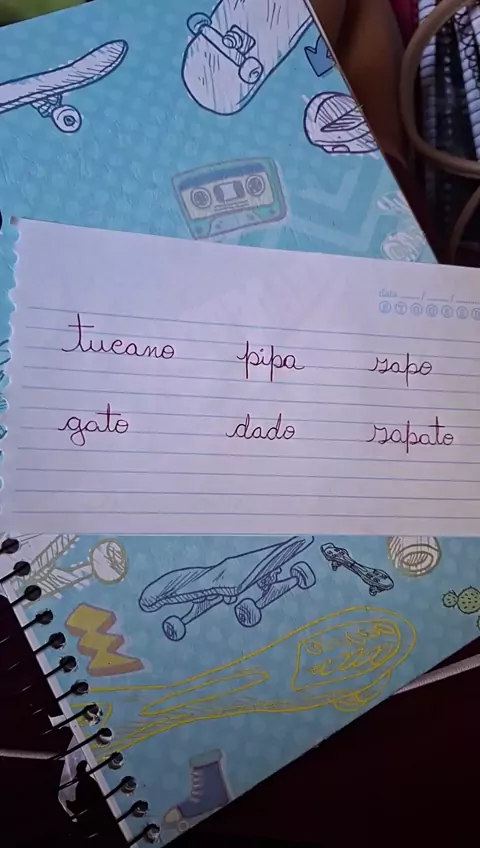 data ___/___/___
D S T Q Q S S
tucano pipa sapo
gato dado sapato